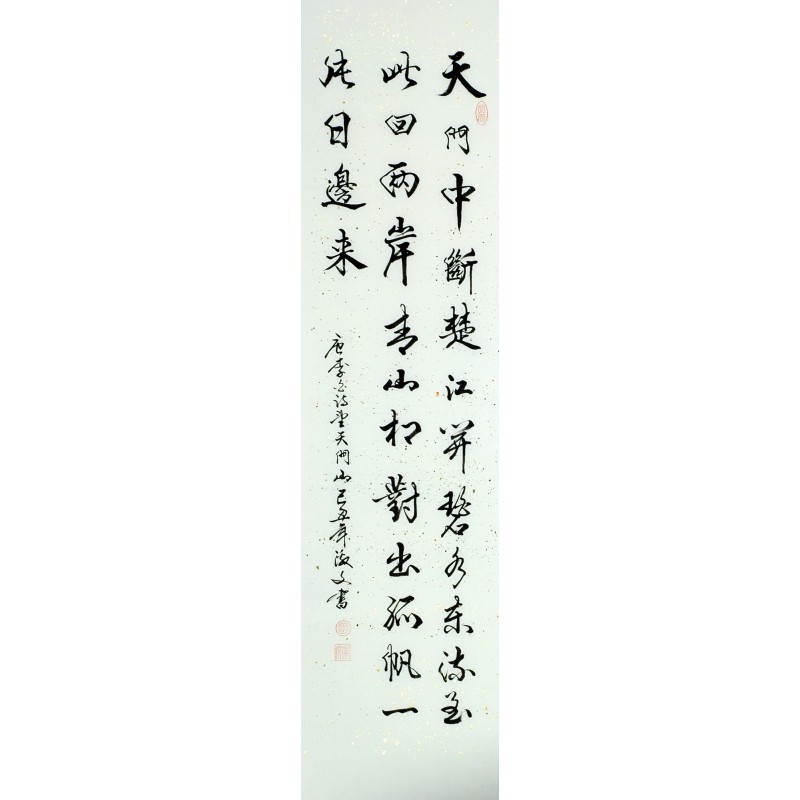 天門中斷楚江開碧水東流至
此回兩岸青山相對出孤帆一
片日邊来
唐李白詩望天門山己丑年激文書